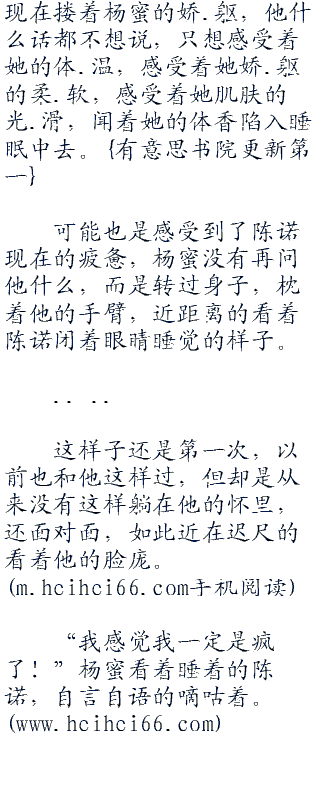 现在搂着杨蜜的娇.躯，他什
么话都不想说，只想感受着
她的体.温，感受着她娇.躯
的柔.软，感受着她肌肤的
光.滑，闻着她的体香陷入睡
眠中去。{有意思书院更新第
一}
可能也是感受到了陈诺
现在的疲惫，杨蜜没有再问
他什么，而是转过身子，枕
着他的手臂，近距离的看着
陈诺闭着眼睛睡觉的样子。
.. ..
这样子还是第一次，以
前也和他这样过，但却是从
来没有这样躺在他的怀里，
还面对面，如此近在迟尺的
看着他的脸庞。
(m.hcihci66.com手机阅读)
“我感觉我一定是疯
了！”杨蜜看着睡着的陈
诺，自言自语的嘀咕着。
(www.hcihci66.com)